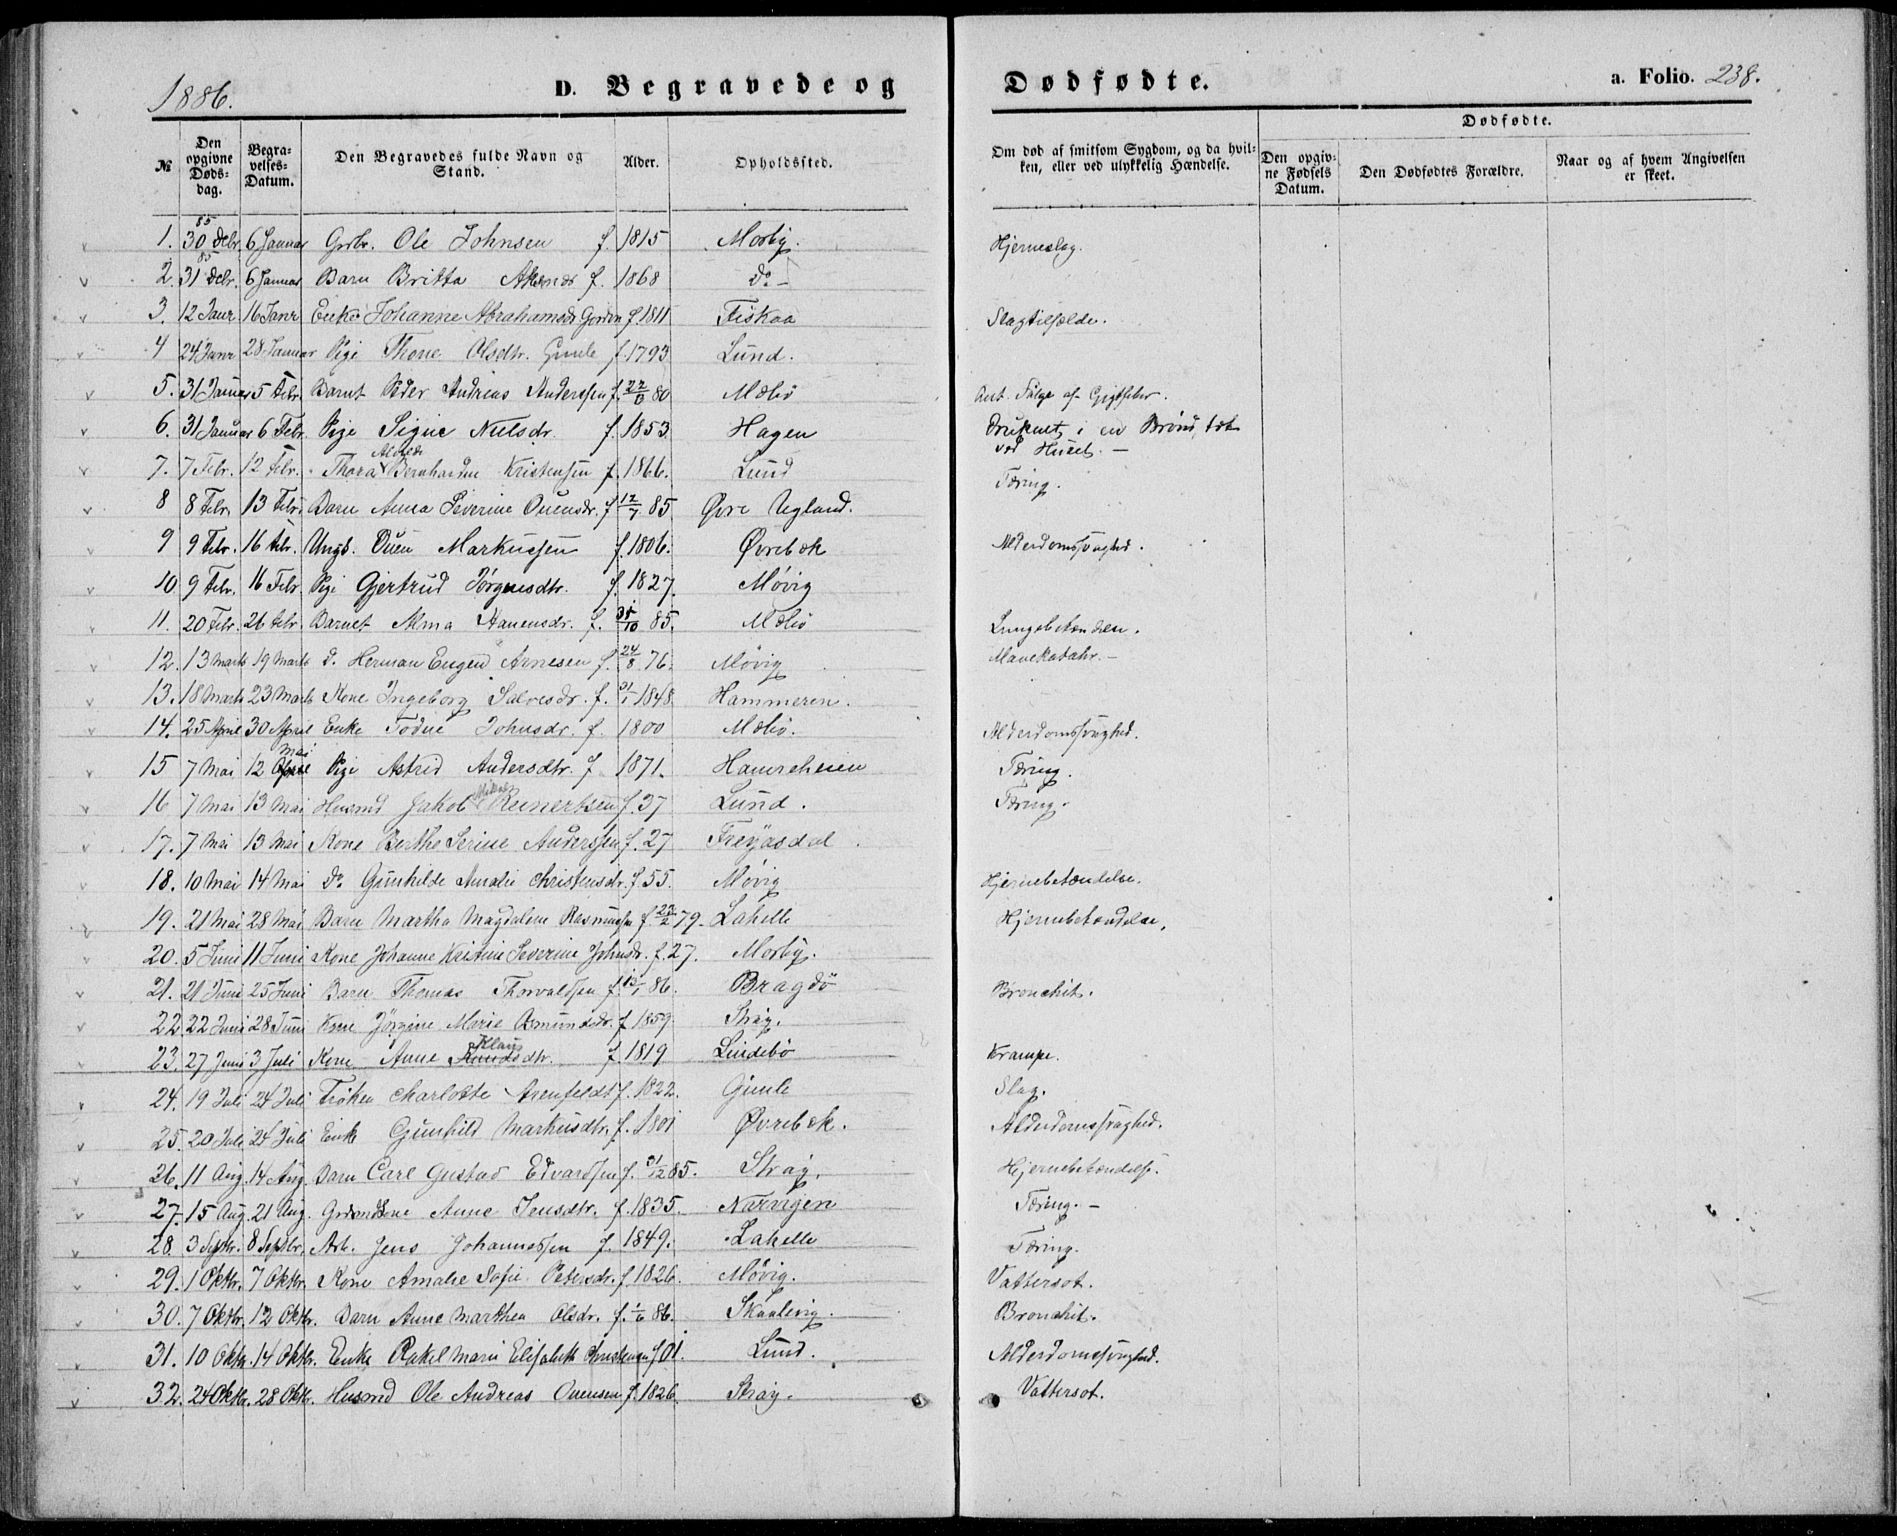 1886.
D. Begravede og Dødfødte.
a. Folio. 238.
№
Den opgivne Døds-dag.
Begra-velses-Datum.
Den Begravedes fulde Navn og Stand.
Alder.
Opholdssted.
Om død af smitsom Sygdom, og da hvil-ken, eller ved ulykkelig Hændelse.
Dødfødte.
Den opgiv-ne Fødsels Datum.
Den Dødfødtes Forældre.
Naar og af hvem Angivelsen er skeet.
1. 30 Debr. 85 6 Januar Grbr. Ole Johnsen f. 1815 Mosby. Hjerneslag.
2. 31 Debr. 85 6 Januar Barn Britta f. 1868 Do
3. 12 Janr 16 Janr Enke Johanne Abrahamsdr f 1811 Fiskaa Slagtilfælde.
4 24 Janr 28 Januar Pige Thone Olsdtr. Gimle f. 1793 Lund.
5. 31 Januar 5 Febr. Barnet Peder Andreas Anderssen f. 80 Mæbø Ant. Følge af Gigtfeber.
6. 31 Januar 6 Febr. Pige Signe Nilsdr. f. 1853 Hagen Druknet i en Brønd tæt ved Huset. —
7. 7 Febr. 12 Febr. Thora Bernhardine Kristensen f. 1866. Lund Tæring.
8 8 Febr. 13 Febr. Barn Anna Severine Ouensdr. f 12/7 85. Øvre Ugland.
9 9 Febr. 16 Febr. Ungk. Ouen Markussen f. 1806. Øvrebæk Alderdomssvaghed.
10 9 Febr. 16 Febr. Pige Gjertrud Jørgensdtr. f. 1827. Møvig
11. 20 Febr. 26 Febr. Barnet Alma Hanensdr. f. 85. Mæbø Lungebetændelse.
12. 13 Marts 19 Marts D. Herman Eugen Arnesen f. 24/8 76. Møvig Mavekatahr. —
13. 18 Marts 23 Marts Kone Ingeborg Salvesdr. f. 1848. Hammeren.
14. 25 April 30 April Enke Todne Johnsdr. f. 1800 Mæbø. Alderdomssvaghed.
15 7 Mai 12 Mai Pige Astrid Andersdtr. f 1871. Hamreheien Tæring.
16 7 Mai 13 Mai Husmd Jakob Reinertsen f. 37 Lund. Tæring.
17. 7 Mai 13 Mai Kone Berthe Serine Anderssen f. 27 Frøjasdal
18. 10 Mai 14 Mai Do Gunhilde Amalie Christensdr. f 55. Møvig Hjernebetændelse.
19. 21 Mai 28 Mai Barn Martha Magdalene f. 22/2 79. Lahelle Hjernebetændelse.
20. 5 Juni 11 Juni Kone Johanne Kristine Severine Johnsdr. f. 27. Mosby.
21. 21 Juni 25 Juni Barn Thomas Thorvaldsen f. 86. Bragdö Bronchit.
22 22 Juni 28 Juni Kone Jörgine Marie Asmundsdr. f 1859. Stray.
23. 27 Juni 3 Juli Kone Anne Klausdtr. f. 1819 Lindebø Krampe.
24. 19 Juli 24 Juli Frøken Charlotte Arenfeldt f. 1822. Gimle Slag.
25. 20 Juli 24 Juli Enke Gunhild Markusdtr. f. 1801 Øvrebæk. Alderdomssvaghed.
26. 11 Aug. 14 Aug. Barn Carl Gustav Edvardsen f. 31/12 85. Stray. Hjernebetændelse.
27. 15 Aug. 21 Aug. Anne Jensdtr. f. 1835. Narvigen Tæring. —
28. 3 Septbr. 8 Septbr. Arb. Jens Johannessen f. 1849. Lahelle Tæring.
29. 1 Oktbr. 7 Oktbr. Kone Amalie Sofie Petersdr. f. 1826. Møvig. Vattersot.
30. 7 Oktbr. 12 Oktbr. Barn Anne Marthea Olsdr. f. 1/6 86. Skaalevig. Bronchit.
31. 10 Oktbr. 14 Oktbr. Enke Rakel Marie Elisabeth Christensen f 01. Lund. Alderdomssvaghed.
32. 24 Oktbr. 28 Oktbr. Husmd Ole Andreas Ouensen f. 1826. Stray. Vattersot.